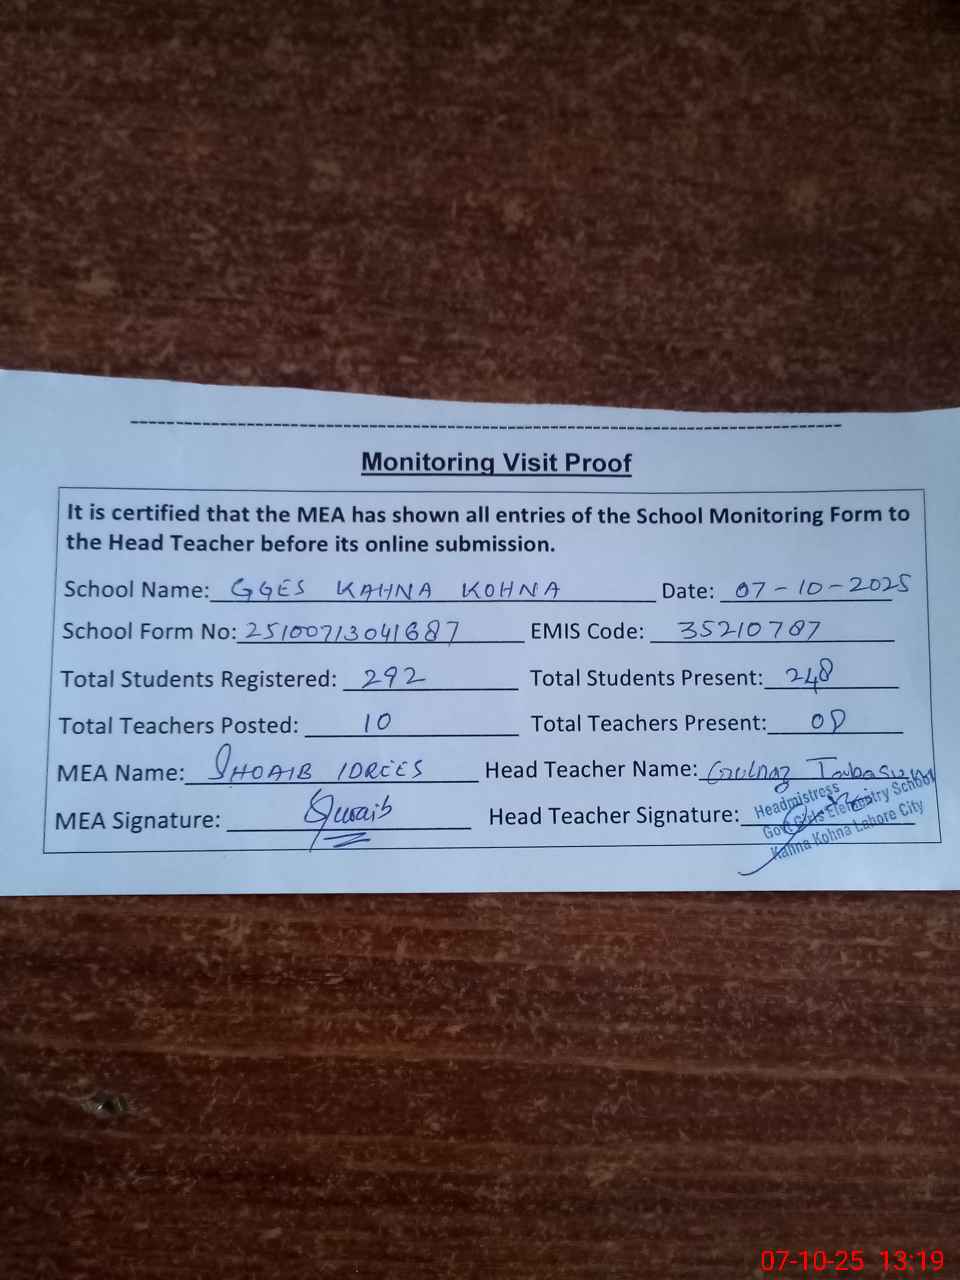 Monitoring Visit Proof
It is certified that the MEA has shown all entries of the School Monitoring Form to
the Head Teacher before its online submission.
School Name: GGES KAHNA KOHNA Date: 07-10-2025
School Form No: 2510071304 EMIS Code: 35210787
Total Students Registered: 292 Total Students Present: 248
Total Teachers Posted: 10 Total Teachers Present: 08
MEA Name: SHOAIB IDREES Head Teacher Name: Gulnaz Tabasum
MEA Signature: Shoaib Head Teacher Signature:
Headmistress
Govt Girls Elementry School
Kahna Kohna Lahore City
07-10-25 13:19